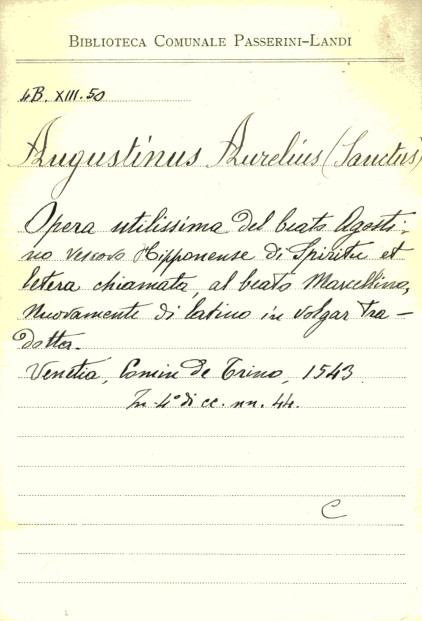 BIBLIOTECA COMUNALE PASSERINI-LANDI
4B. XIII. 50
Augustinus Aurelius (Sanctus)
Opera utilissima del beato Agosti-
no vescovo Hipponense di Spiritu et
letera chiamata, al beato Marcellino,
nuovamente di latino in volgar tra-
dotta.
Venetia, Comin de Trino, 1543
In-4° di cc. nn. 44.
C